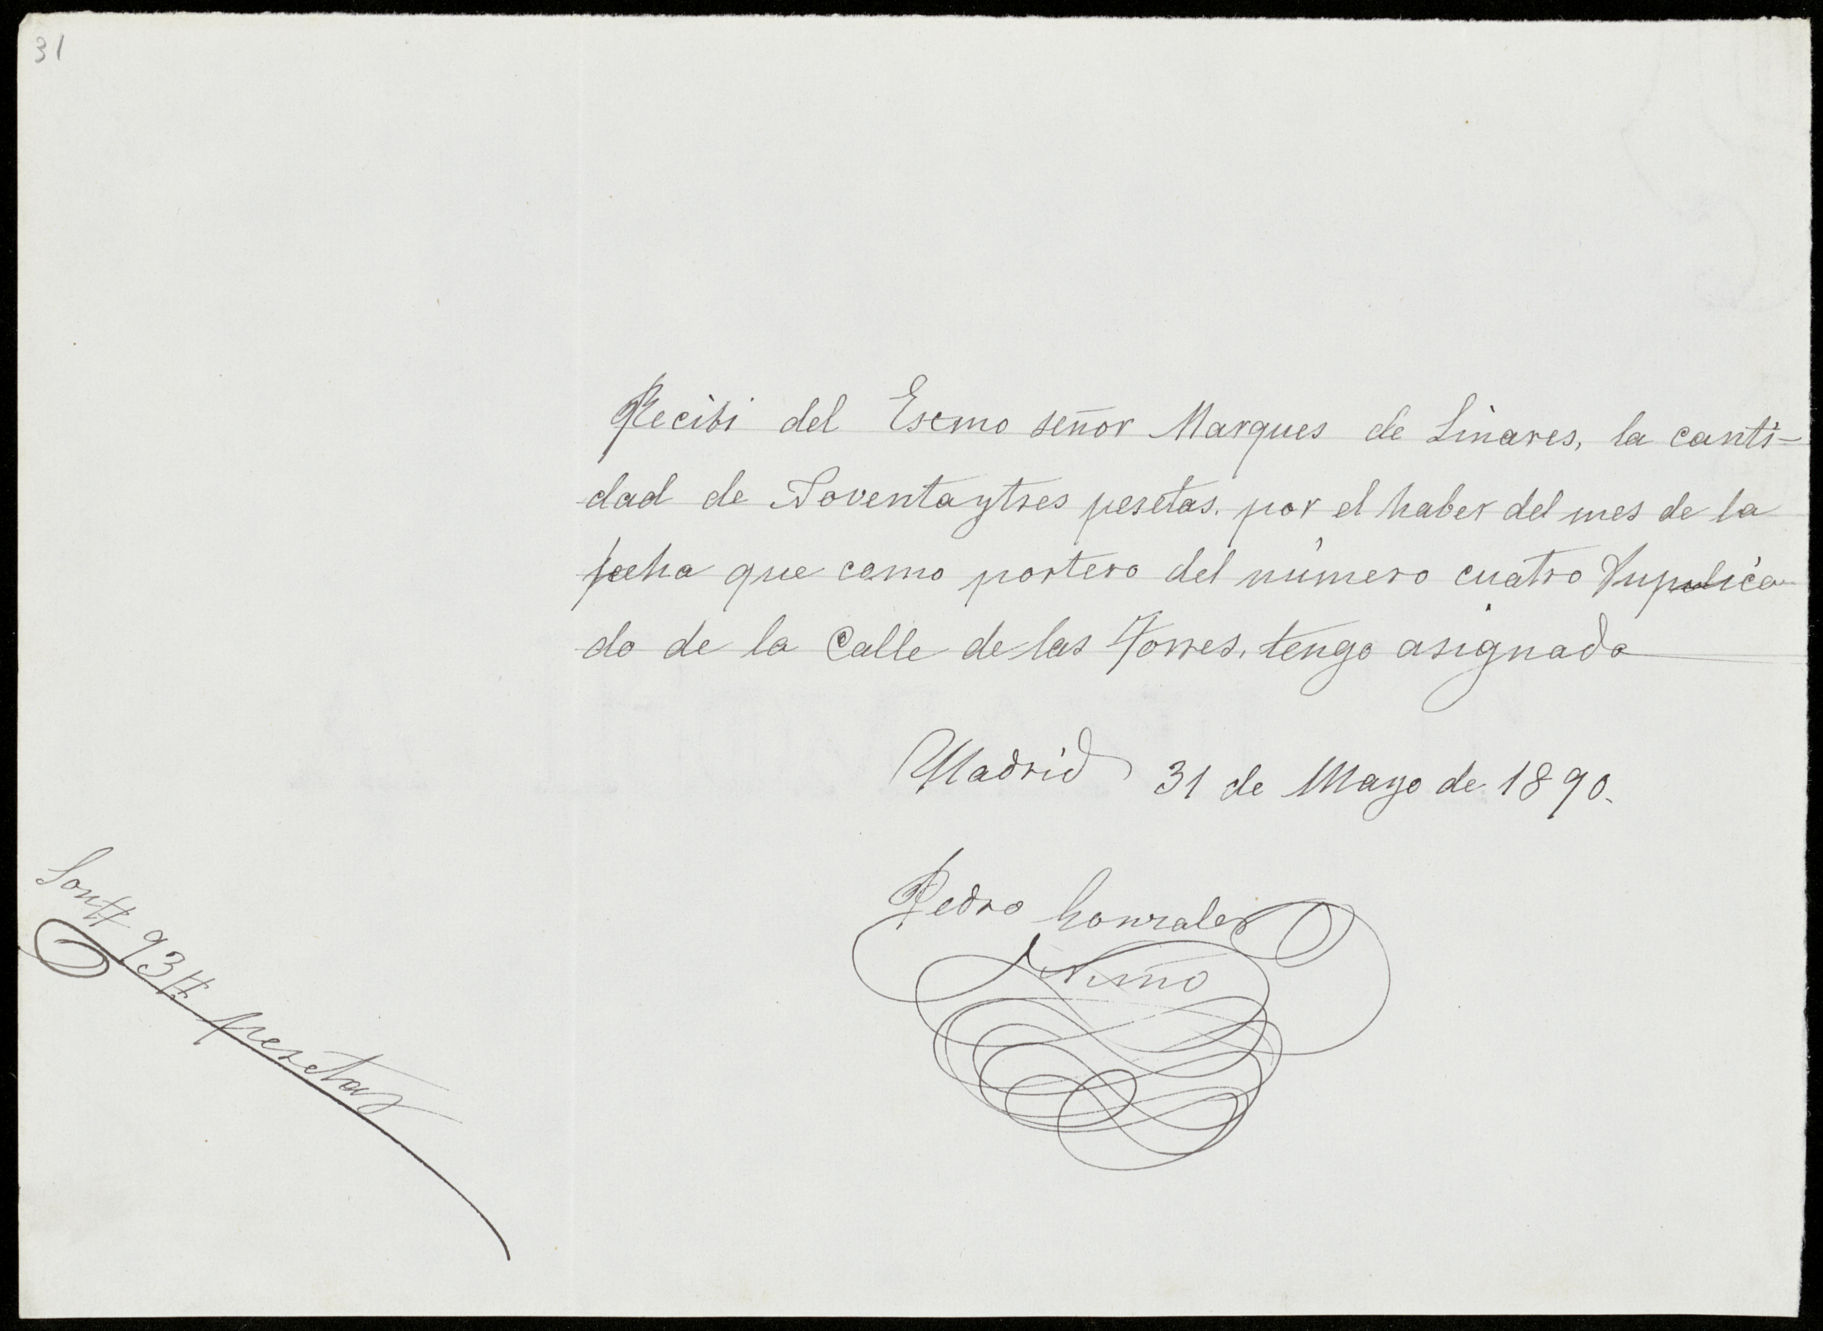 31
Recibi del Escmo señor Marques de Linares, la canti-
dad de Noventaytres pesetas. por el haber del mes de la
fecha que como portero del número cuatro Dupulica-
do de la Calle de las Torres, tengo asignado
Madrid 31 de Mayo de 1890.
Pedro Gonzalez
Nimo
Son # 93 # pesetas